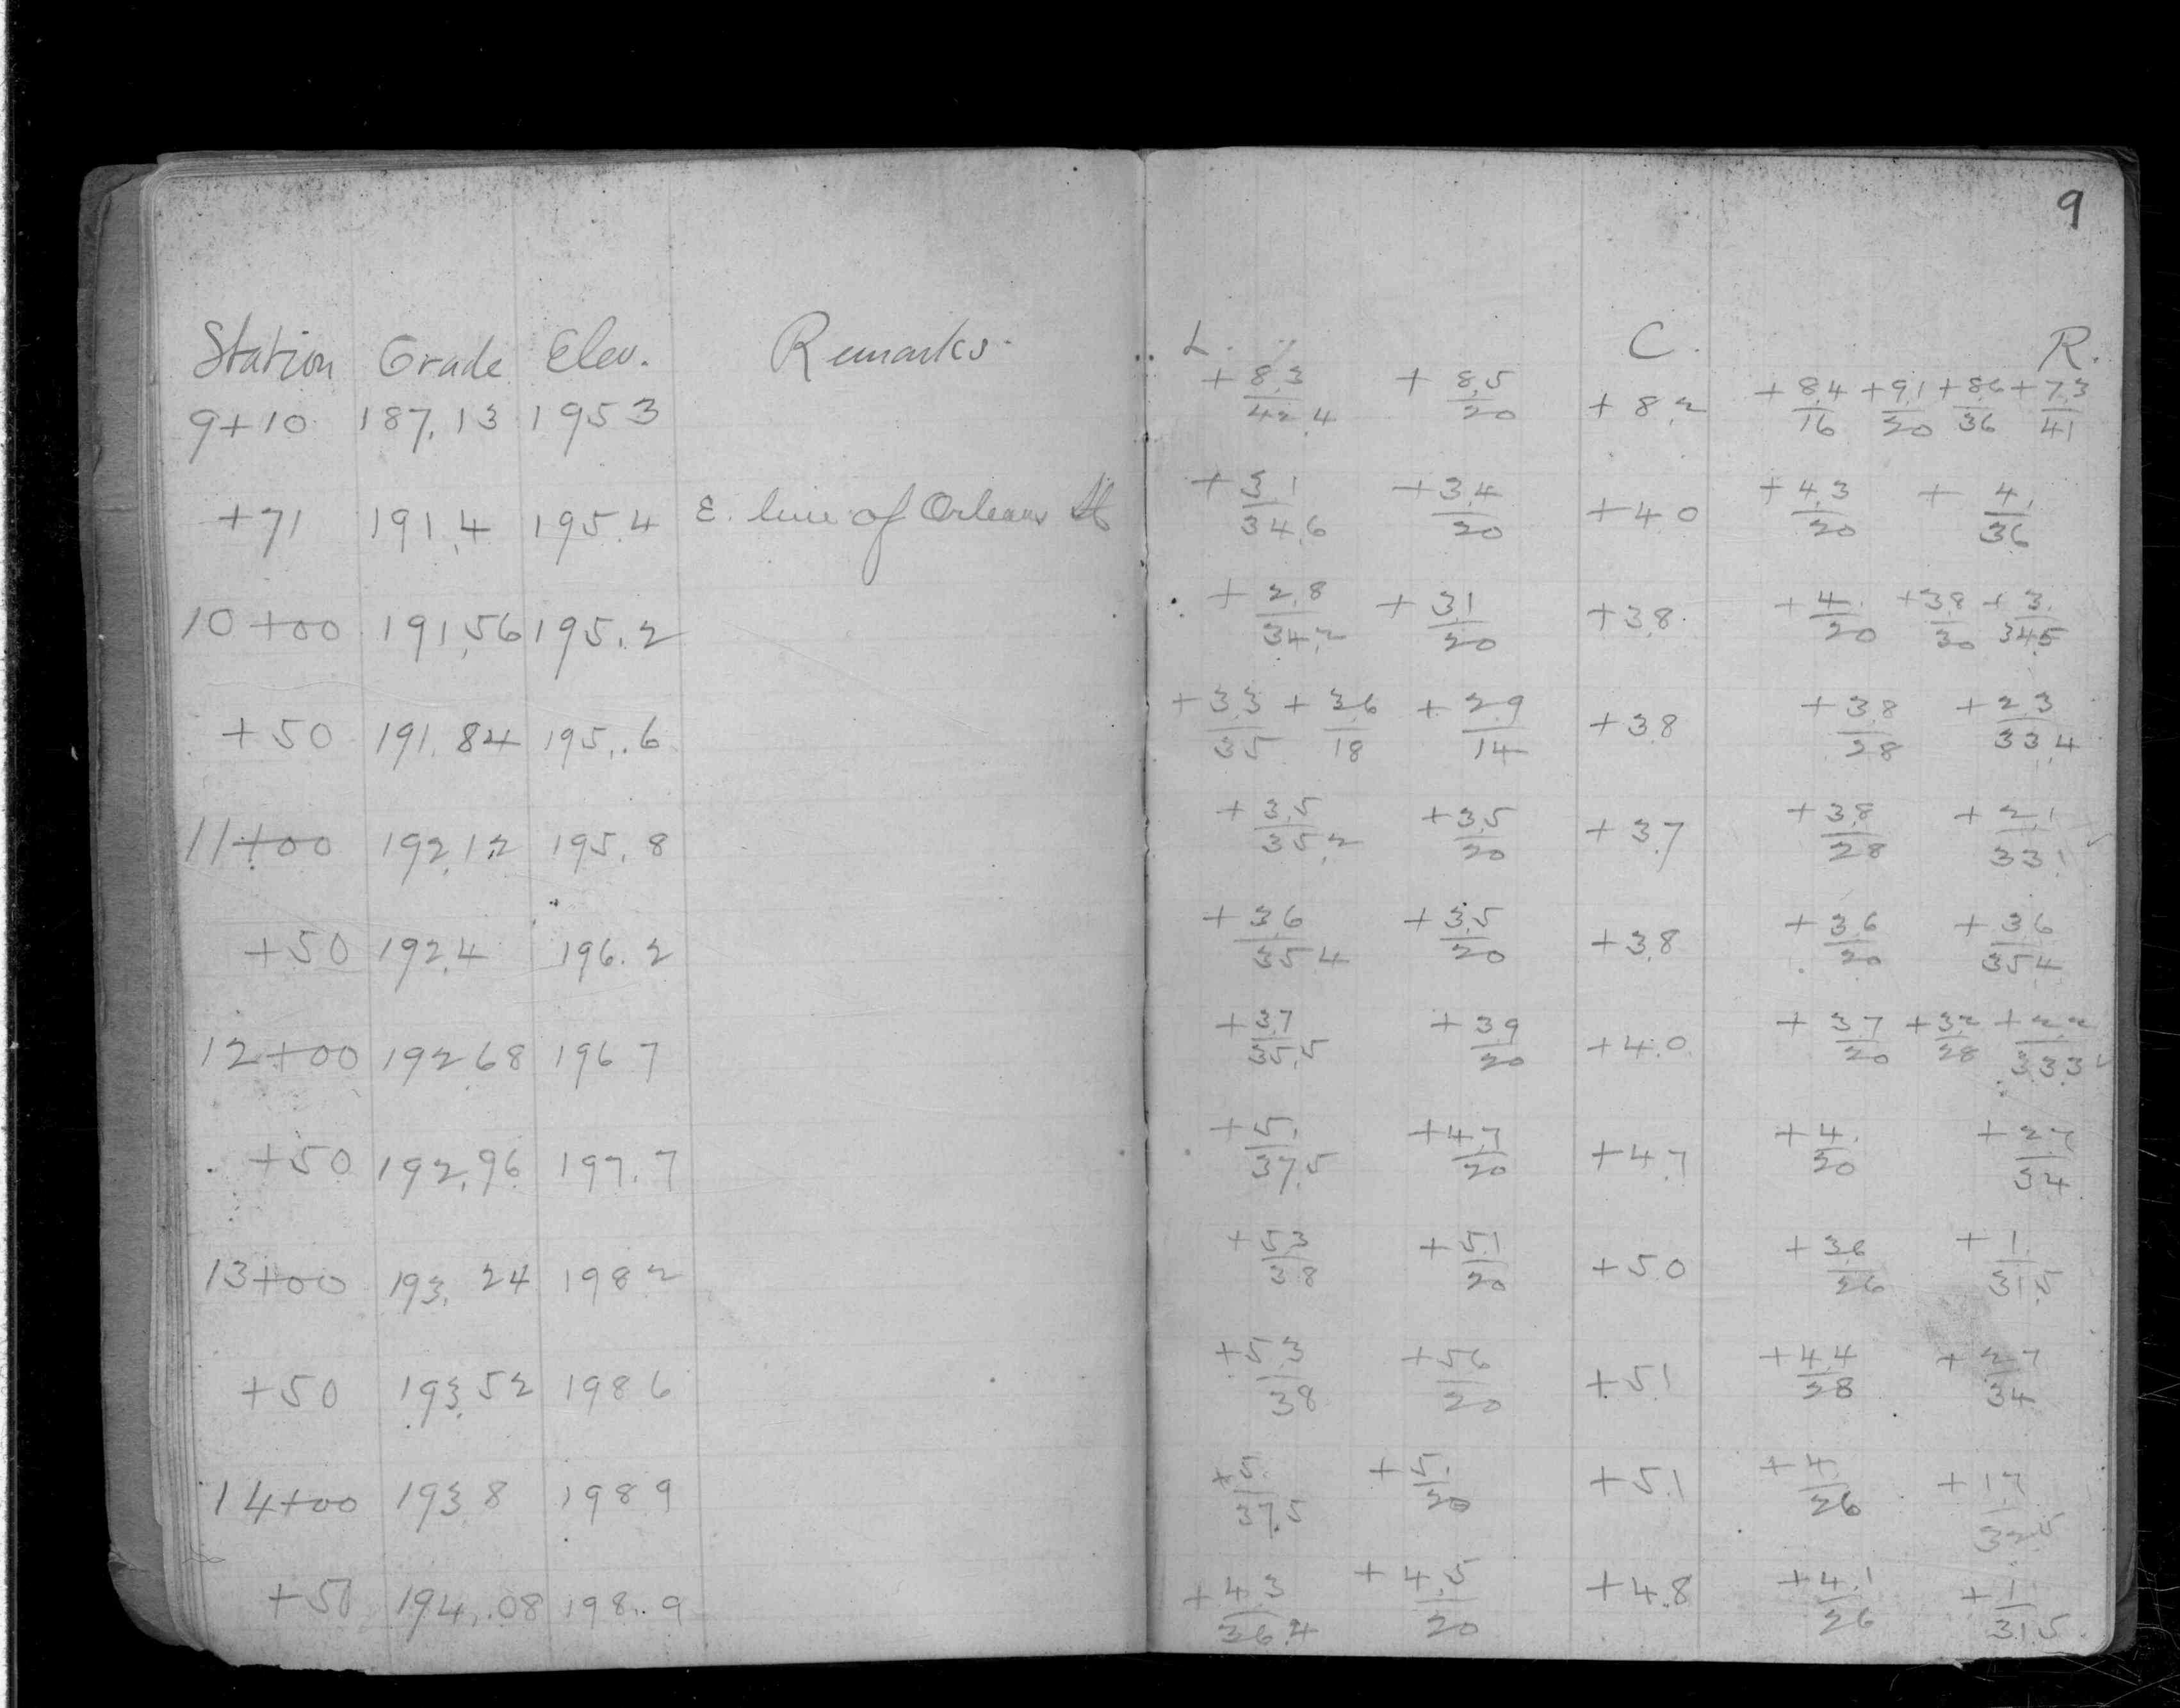 9
Station Grade Elev. Remarks. L. C. R.
9+10 187.13 195 3 +8.3/42.4 +8.5/20 +8.2 +8.4/16 +9.1/20 +8.6/36 +7.3/41
+71 191.4 195.4 E. line of Orleans St +3.1/34.6 +3.4/20 +4.0 +4.3/20 +4./36
10+00 191.56 195.2 +2.8/34.2 +3.1/20 +3.8 +4./20 +3.8/30 +3./34.5
+50 191.84 195.6 +3.3/35 +3.6/18 +2.9/14 +3.8 +3.8/28 +2.3/33.4
11+00 192.12 195.8 +3.5/35.2 +3.5/20 +3.7 +3.8/28 +2.1/33.1
+50 192.4 196.2 +3.6/35.4 +3.5/20 +3.8 +3.6/20 +3.6/35.4
12+00 192.68 196 7 +3.7/35.5 +3.9/20 +4.0 +3.7/20 +3.2/28 +2.2/33.3
+50 192.96 197.7 +5./37.5 +4.7/20 +4.7 +4./20 +2.7/34
13+00 193.24 198 2 +5.3/38 +5.1/20 +5.0 +3.6/26 +1./31.5
+50 193.52 198 6 +5.3/38 +5.6/20 +5.1 +4.4/28 +2.7/34
14+00 193.8 198 9 +5./37.5 +5./20 +5.1 +4./26 +1.7/32.5
+50 194.08 198.9 +4.3/36.4 +4.5/20 +4.8 +4.1/26 +1/31.5